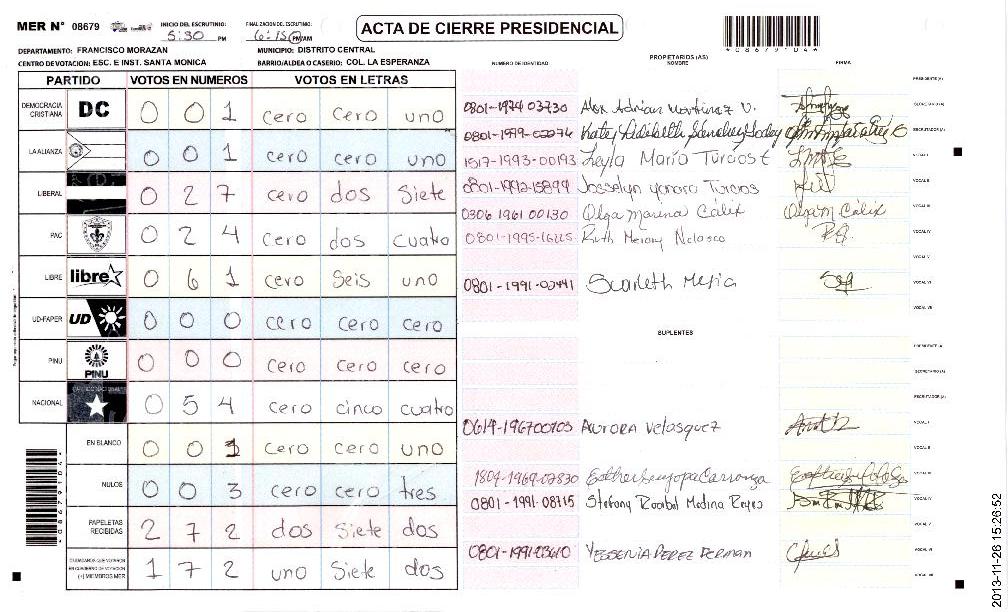 MER N° 08679
INICIO DEL ESCRUTINIO: 5:30 PM
FINALIZACION DEL ESCRUTINIO: 6:15 PM/AM
ACTA DE CIERRE PRESIDENCIAL
*08679104*
DEPARTAMENTO: FRANCISCO MORAZAN
MUNICIPIO: DISTRITO CENTRAL
CENTRO DE VOTACION: ESC. E INST. SANTA MONICA
BARRIO/ALDEA O CASERIO: COL. LA ESPERANZA
PARTIDO VOTOS EN NUMEROS VOTOS EN LETRAS
DEMOCRACIA CRISTIANA DC 0 0 1 cero cero uno
LA ALIANZA 0 0 1 cero cero uno
LIBERAL 0 2 7 cero dos siete
PAC 0 2 4 cero dos cuatro
LIBRE libre 0 6 1 cero seis uno
UD-FAPER UD 0 0 0 cero cero cero
PINU PINU 0 0 0 cero cero cero
NACIONAL 0 5 4 cero cinco cuatro
EN BLANCO 0 0 1 cero cero uno
NULOS 0 0 3 cero cero tres
PAPELETAS RECIBIDAS 2 7 2 dos siete dos
CIUDADANOS QUE VOTARON EN CUADERNO DE VOTACION (+) MIEMBROS MER 1 7 2 uno siete dos
NUMERO DE IDENTIDAD
PROPIETARIOS (AS)
NOMBRE
FIRMA
PRESIDENTE (A)
0801-1974 03730 Alex Adrian Martinez V. SECRETARIO (A)
0801-1979-02274 ESCRUTADOR (A)
1517-1993-00193 Leyla María Turcios t VOCAL I
0801-1992-15899 Josselyn Turcios VOCAL II
0306 1961 00130 Olga Marina Cálix Olga M Cálix VOCAL III
0801-1995-16225 Ruth Merary Velasco VOCAL IV
VOCAL V
0801-1991-02441 Scarleth Mejia VOCAL VI
VOCAL VII
SUPLENTES
PRESIDENTE (A)
SECRETARIO (A)
ESCRUTADOR (A)
0614-196700703 Aurora Velasquez VOCAL I
VOCAL II
1804-1969-02830 VOCAL III
0801-1991-08115 Stefany Medina Reyes VOCAL IV
VOCAL V
0801-1991-23610 Yessenia Perez VOCAL VI
VOCAL VII
2013-11-26 15:26:52